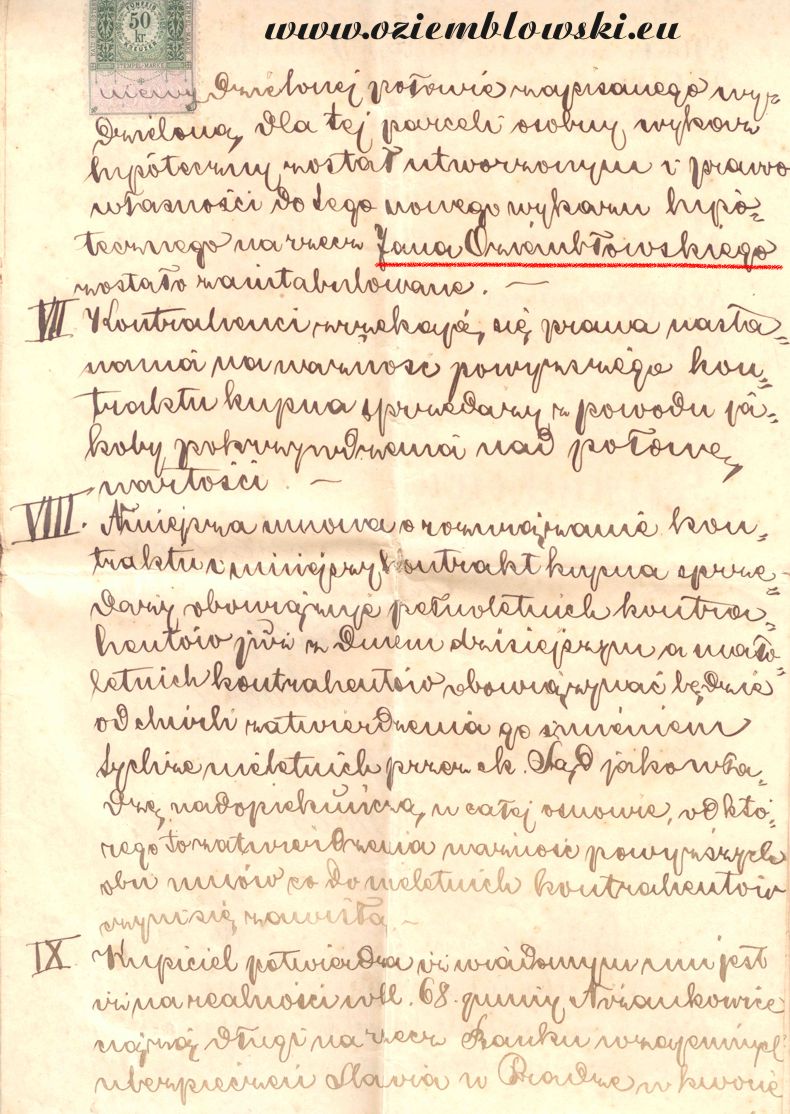 www.oziemblowski.eu
50
kr.
dzielonej połowie zapisanego wy-
dzieloną, dla tej parceli osobny wykaz
hipoteczny został utworzonym i prawo
własności do tego nowego wykazu hipo-
tecznego na rzecz Jana Oziembłowskiego
zostało zaintabulowane. —
VII Kontrahenci zrzekają się prawa nasta-
nania na ważność powyższego kon-
traktu kupna sprzedaży z powodu ja-
koby pokrzywdzenia nad połowę
wartości. —
VIII. Niniejsza umowa o rozwiązanie kon-
traktu i niniejszy kontrakt kupna sprze-
daży obowiązuje pełnoletnich kontra-
hentów już z dniem dzisiejszym a mało-
letnich kontrahentów obowiązywać będzie
od chwili zatwierdzenia go imieniem
tychże nieletnich przez ck. Sąd jako wła-
dzę nadopiekuńczą w całej osnowie, od któ-
rego to zatwierdzenia ważność powyższych
obu umów co do nieletnich kontrahentów
czyni się zawisłą —
IX Kupiciel potwierdza iż wiadomym mu jest
iż na realności whl. 68. gminy Niżankowice
ciążą długi na rzecz Banku wzajemnych
ubezpieczeń Slavia w Pradze w kwocie